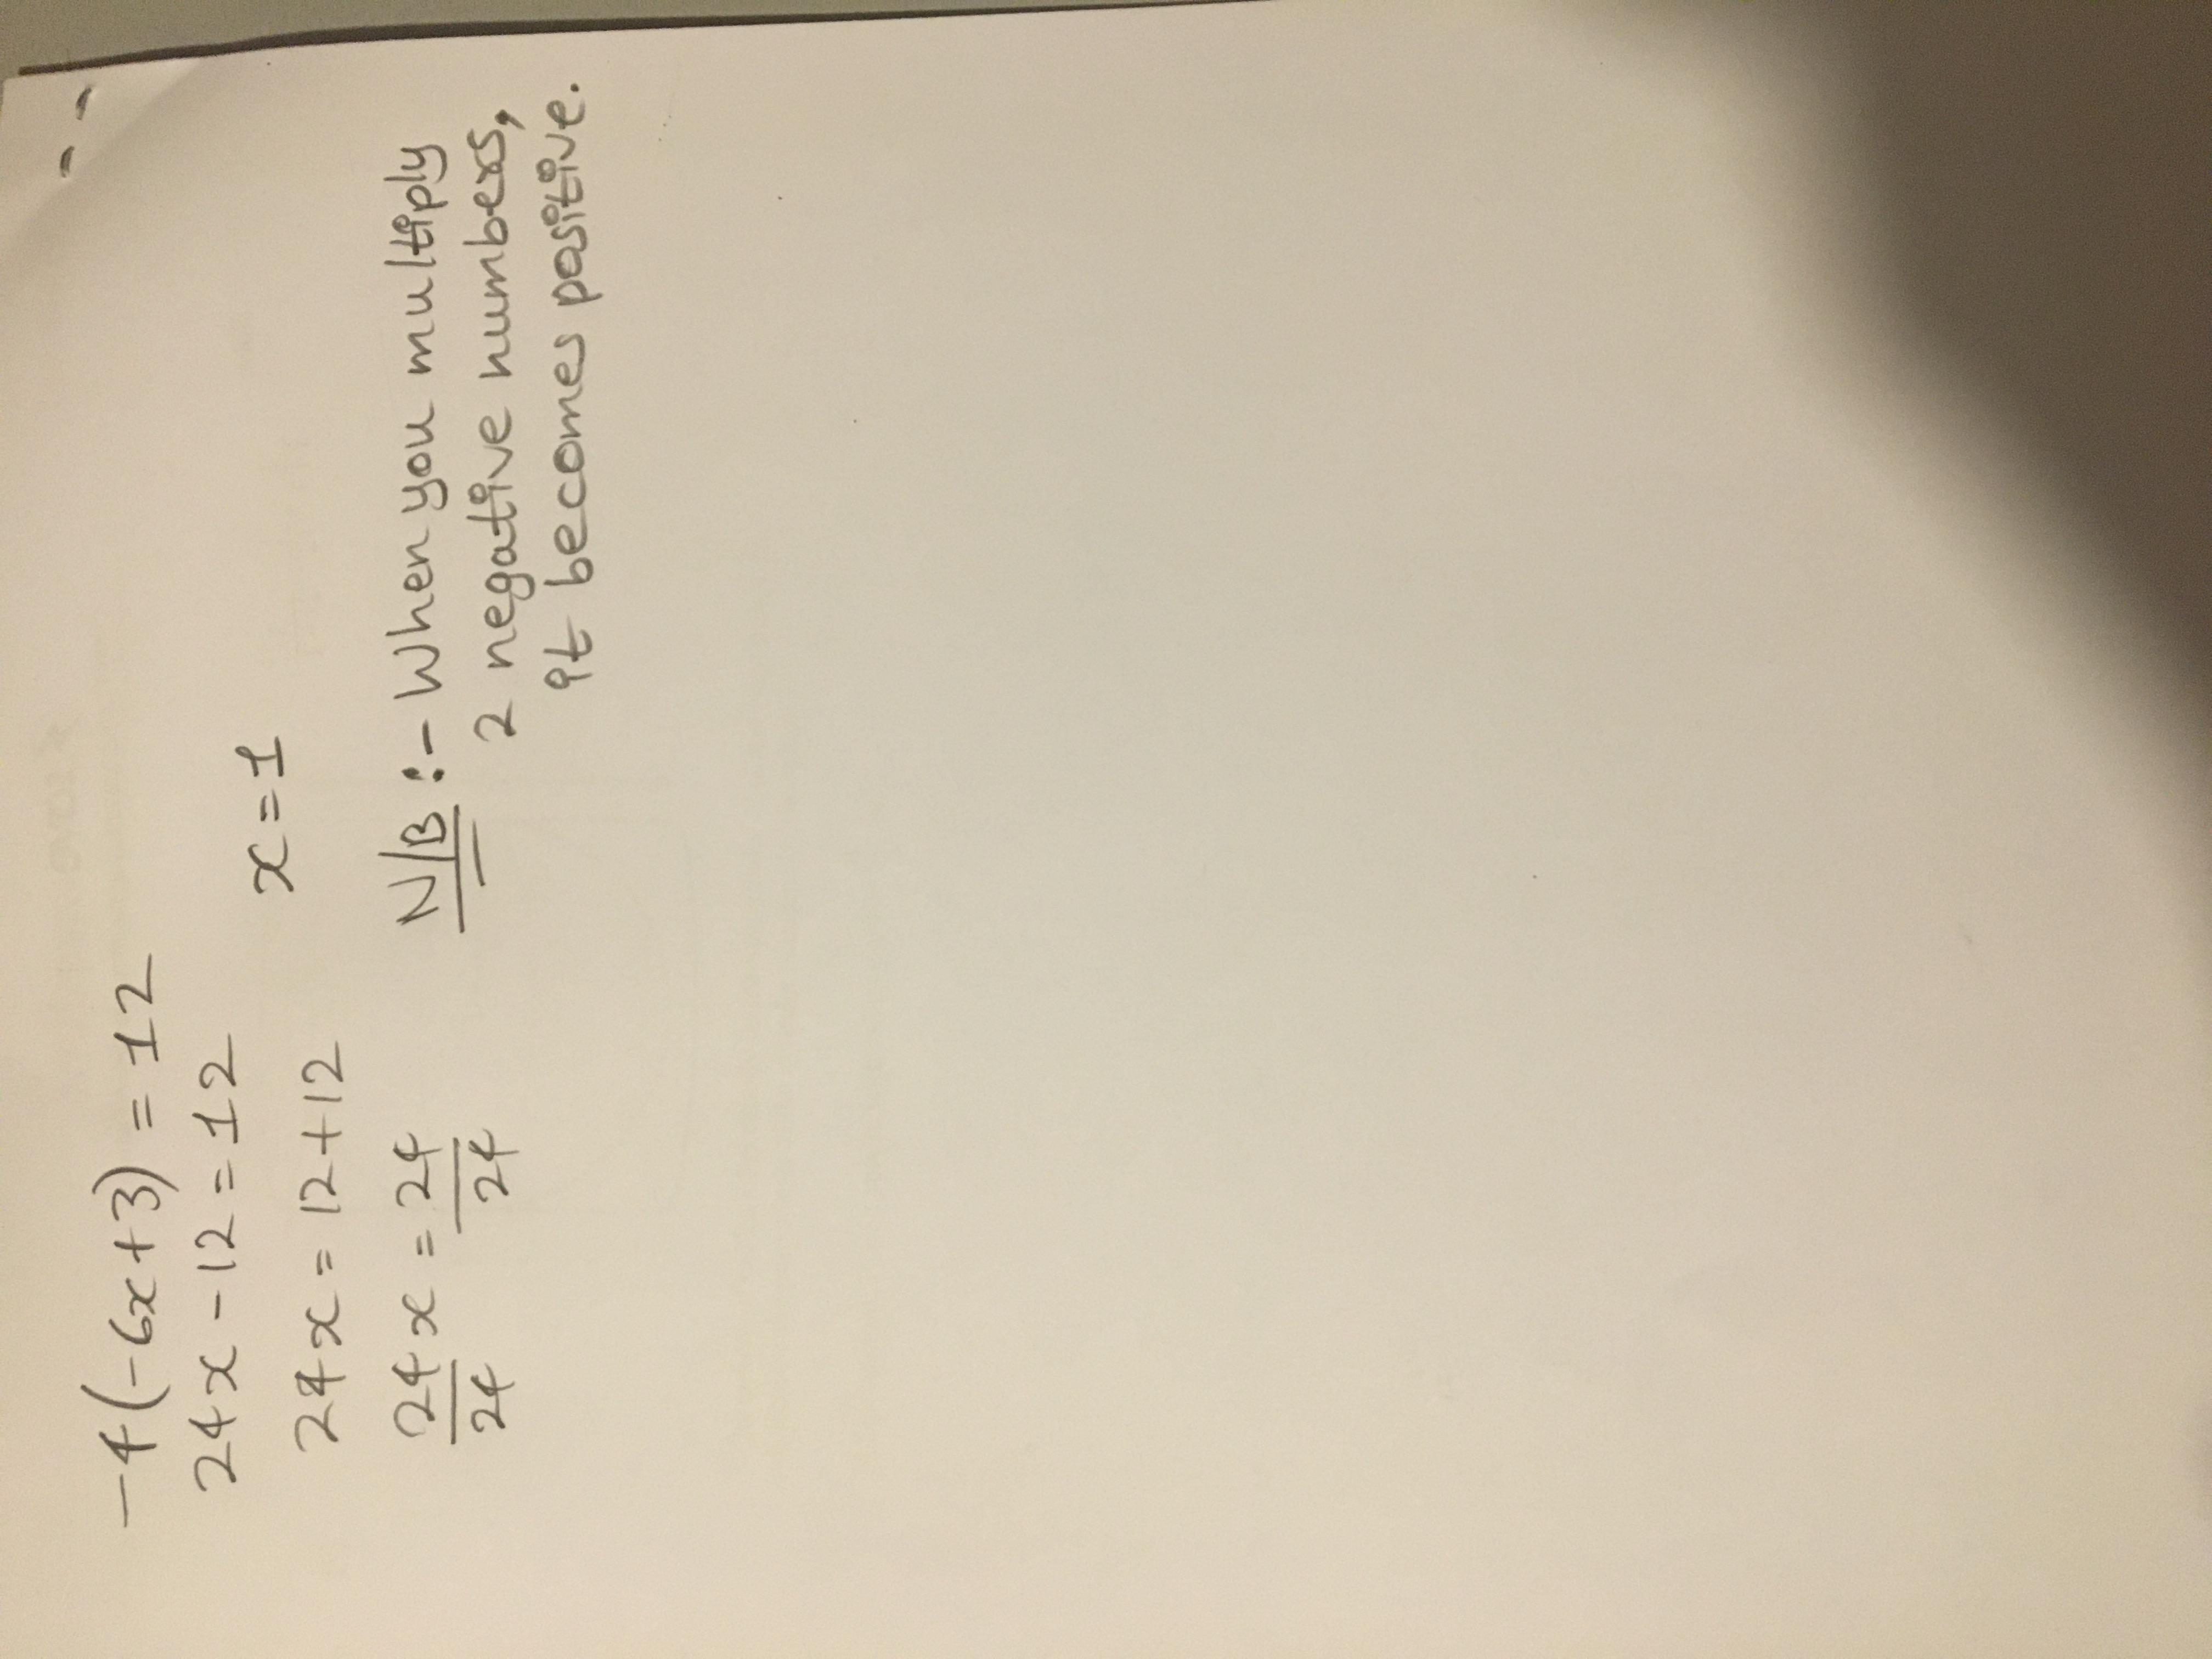 -4(-6x+3) = 12
24x - 12 = 12
x = 1
24x = 12+12
24x = 24
24 24
N/B :- When you multiply
2 negative numbers,
it becomes positive.